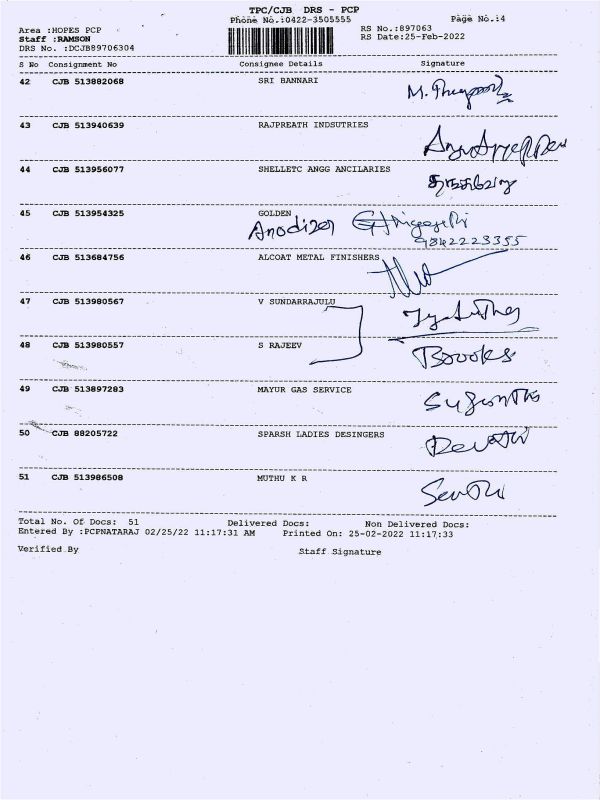 TPC/CJB DRS - PCP
Phone No.:0422-3505555
Page No.:4
Area :HOPES PCP
RS No.:897063
Staff :RAMSON
RS Date:25-Feb-2022
DRS No. :DCJB89706304
S No Consignment No Consignee Details Signature
42 CJB 513882068 SRI BANNARI
43 CJB 513940639 RAJPREATH INDSUTRIES
44 CJB 513956077 SHELLETC ANGG ANCILARIES
45 CJB 513954325 GOLDEN
Anodizer
9842223355
46 CJB 513684756 ALCOAT METAL FINISHERS
47 CJB 513980567 V SUNDARRAJULU
48 CJB 513980557 S RAJEEV
Brooks
49 CJB 513897283 MAYUR GAS SERVICE
50 CJB 88205722 SPARSH LADIES DESINGERS
51 CJB 513986508 MUTHU K R
Total No. Of Docs: 51 Delivered Docs: Non Delivered Docs:
Entered By :PCPNATARAJ 02/25/22 11:17:31 AM Printed On: 25-02-2022 11:17:33
Verified By Staff Signature